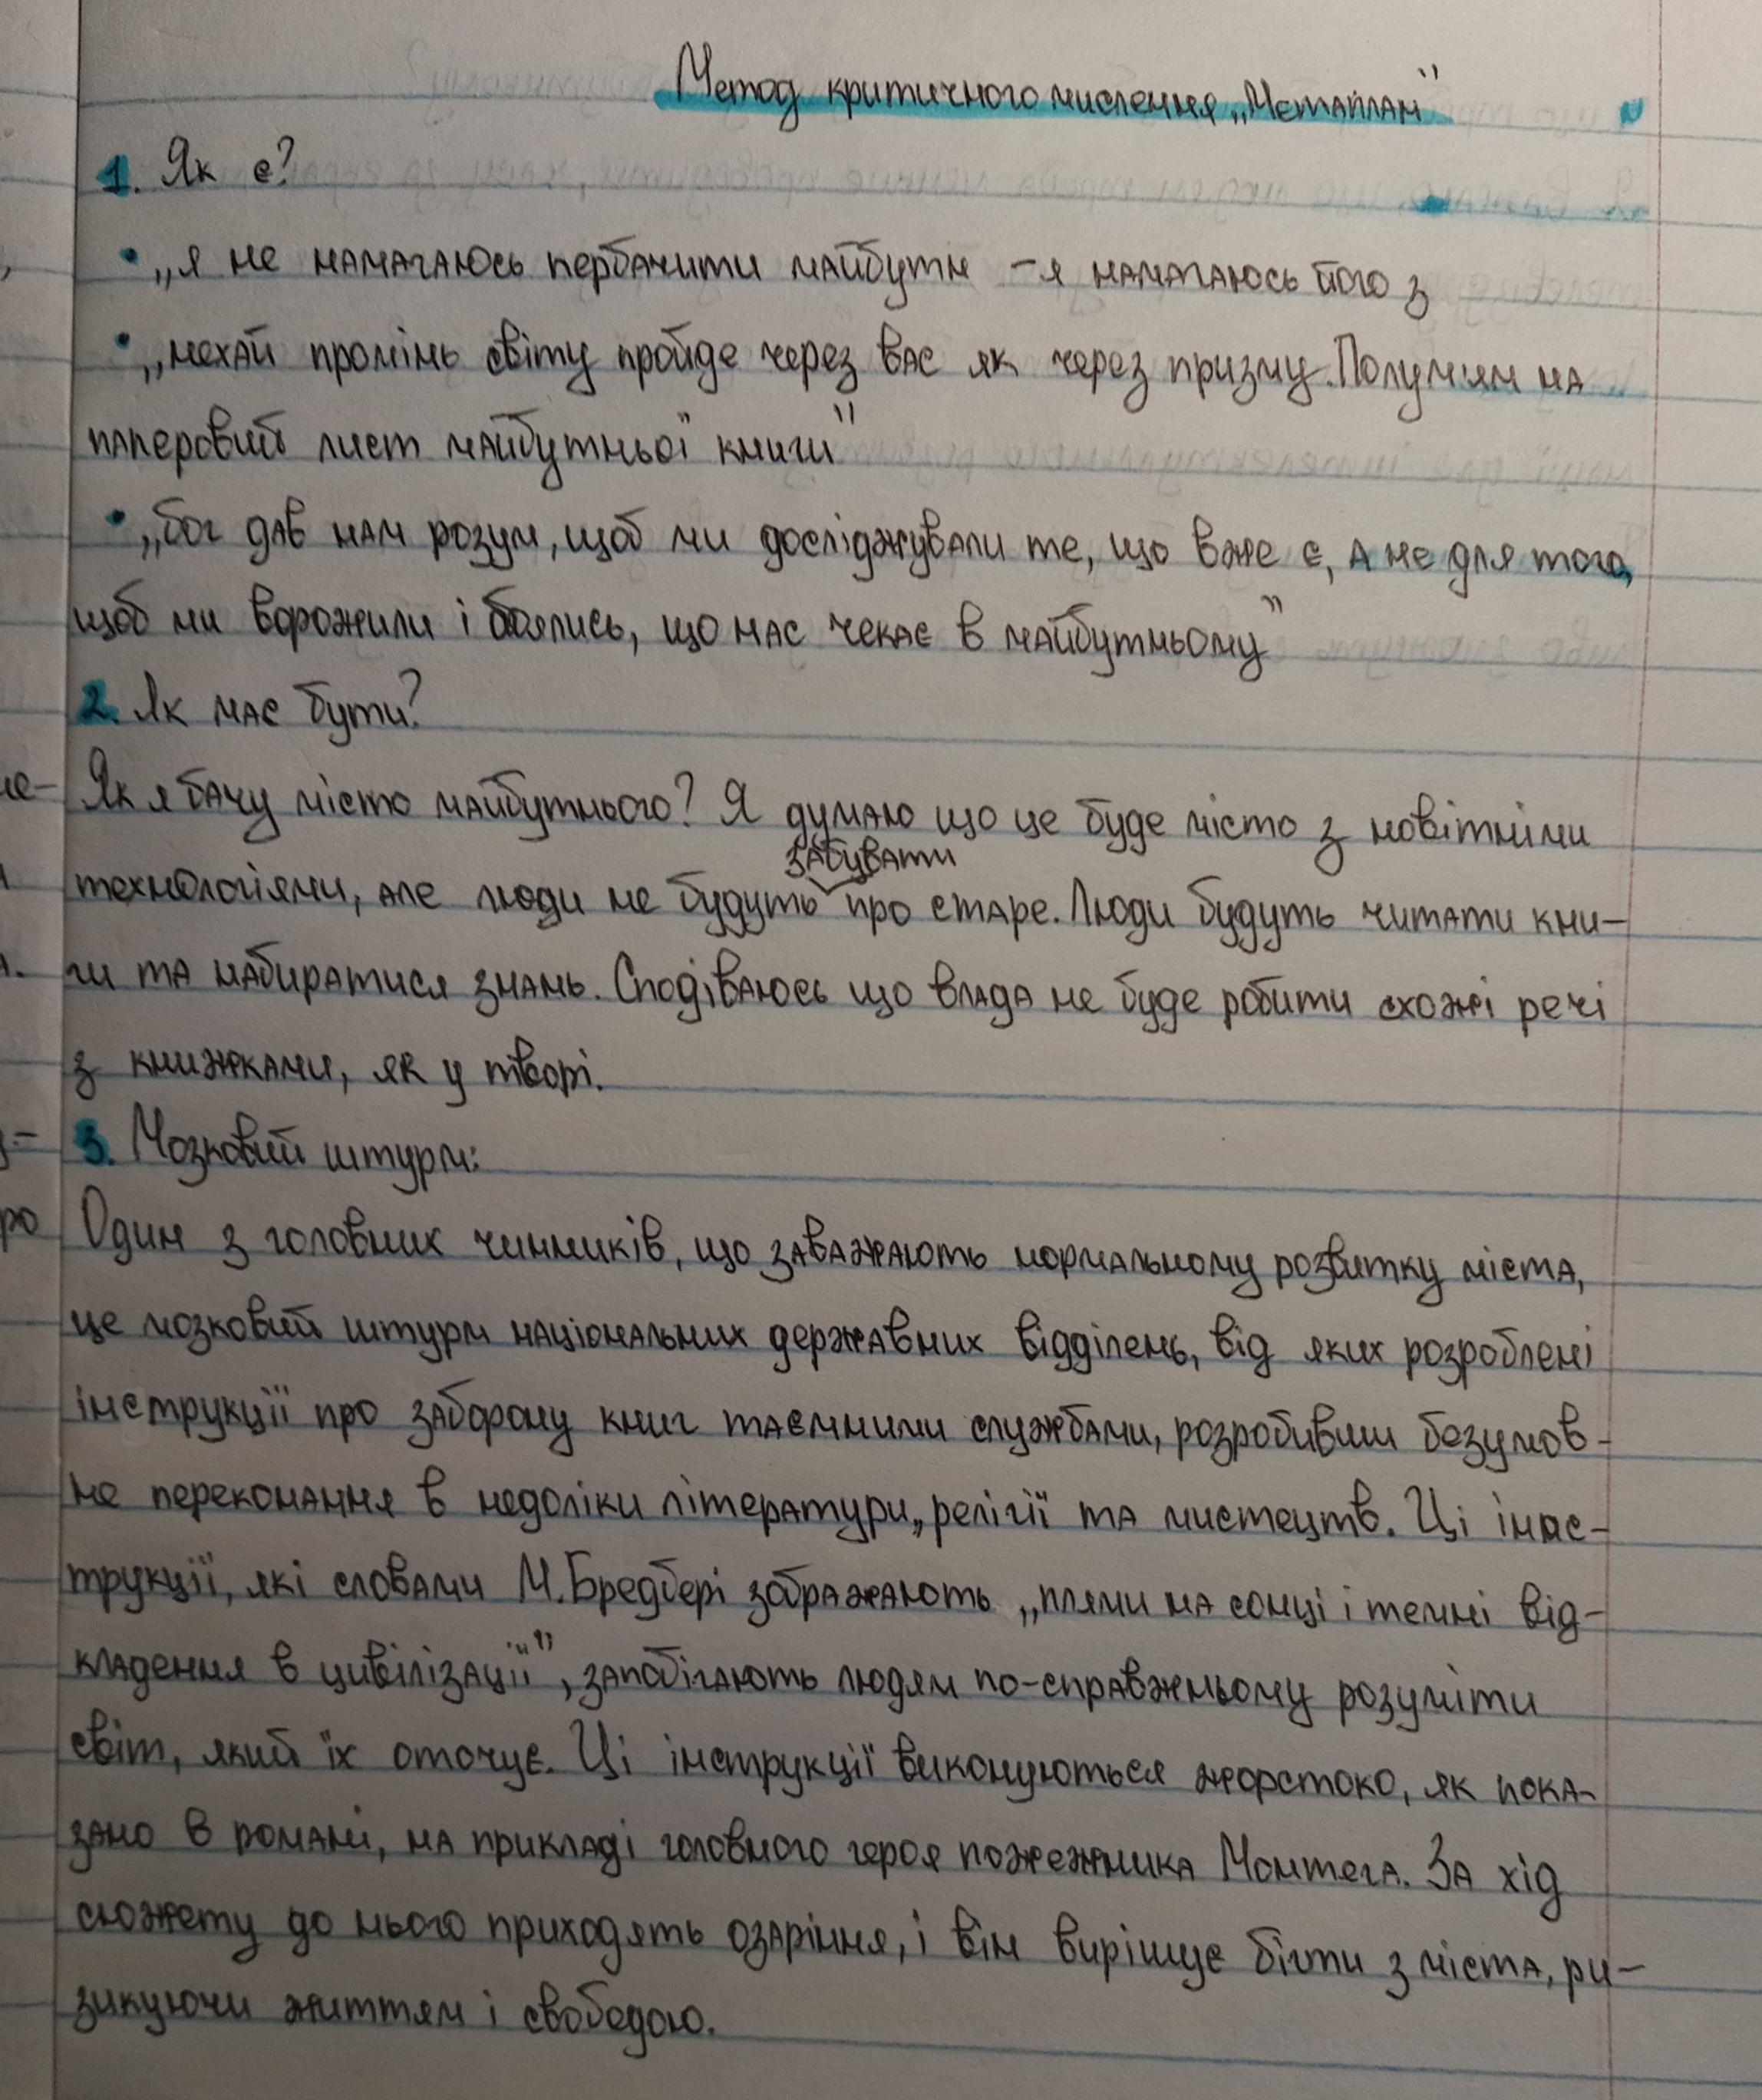 Метод критичного мислення „Метаплан”
1. Як є?
• „я не намагаюсь пербачити майбутн – я намагаюсь його з
• „нехай промінь світу пройде через вас як через призму. Полум'ям на
паперовий лист майбутньої книги”
• „бог дав нам розум, щоб ми досліджували те, що вже є, а не для того,
щоб ми ворожили і боялись, що нас чекає в майбутньому”
2. Як має бути?
Як я бачу місто майбутнього? Я думаю що це буде місто з новітніми
забувати
технологіями, але люди не будуть про старе. Люди будуть читати кни-
ги та набиратися знань. Сподіваюсь що влада не буде робити схожі речі
з книжками, як у творі.
3. Мозковий штурм:
Один з головних чинників, що заважають нормальному розвитку міста,
це мозковий штурм національних державних відділень, від яких розроблені
інструкції про заборону книг таємними службами, розробивши безумов-
не переконання в недоліки літератури, релігії та мистецтв. Ці інс-
трукції, які словами М. Бредбері зображають „плями на сонці і темні від-
кладення в цивілізації”, запобігають людям по-справжньому розуміти
світ, який їх оточує. Ці інструкції виконуються жорстоко, як пока-
зано в романі, на прикладі головного героя пожежника Монтега. За хід
сюжету до нього приходять озаріння, і він вирішує бігти з міста, ри-
зикуючи життям і свободою.